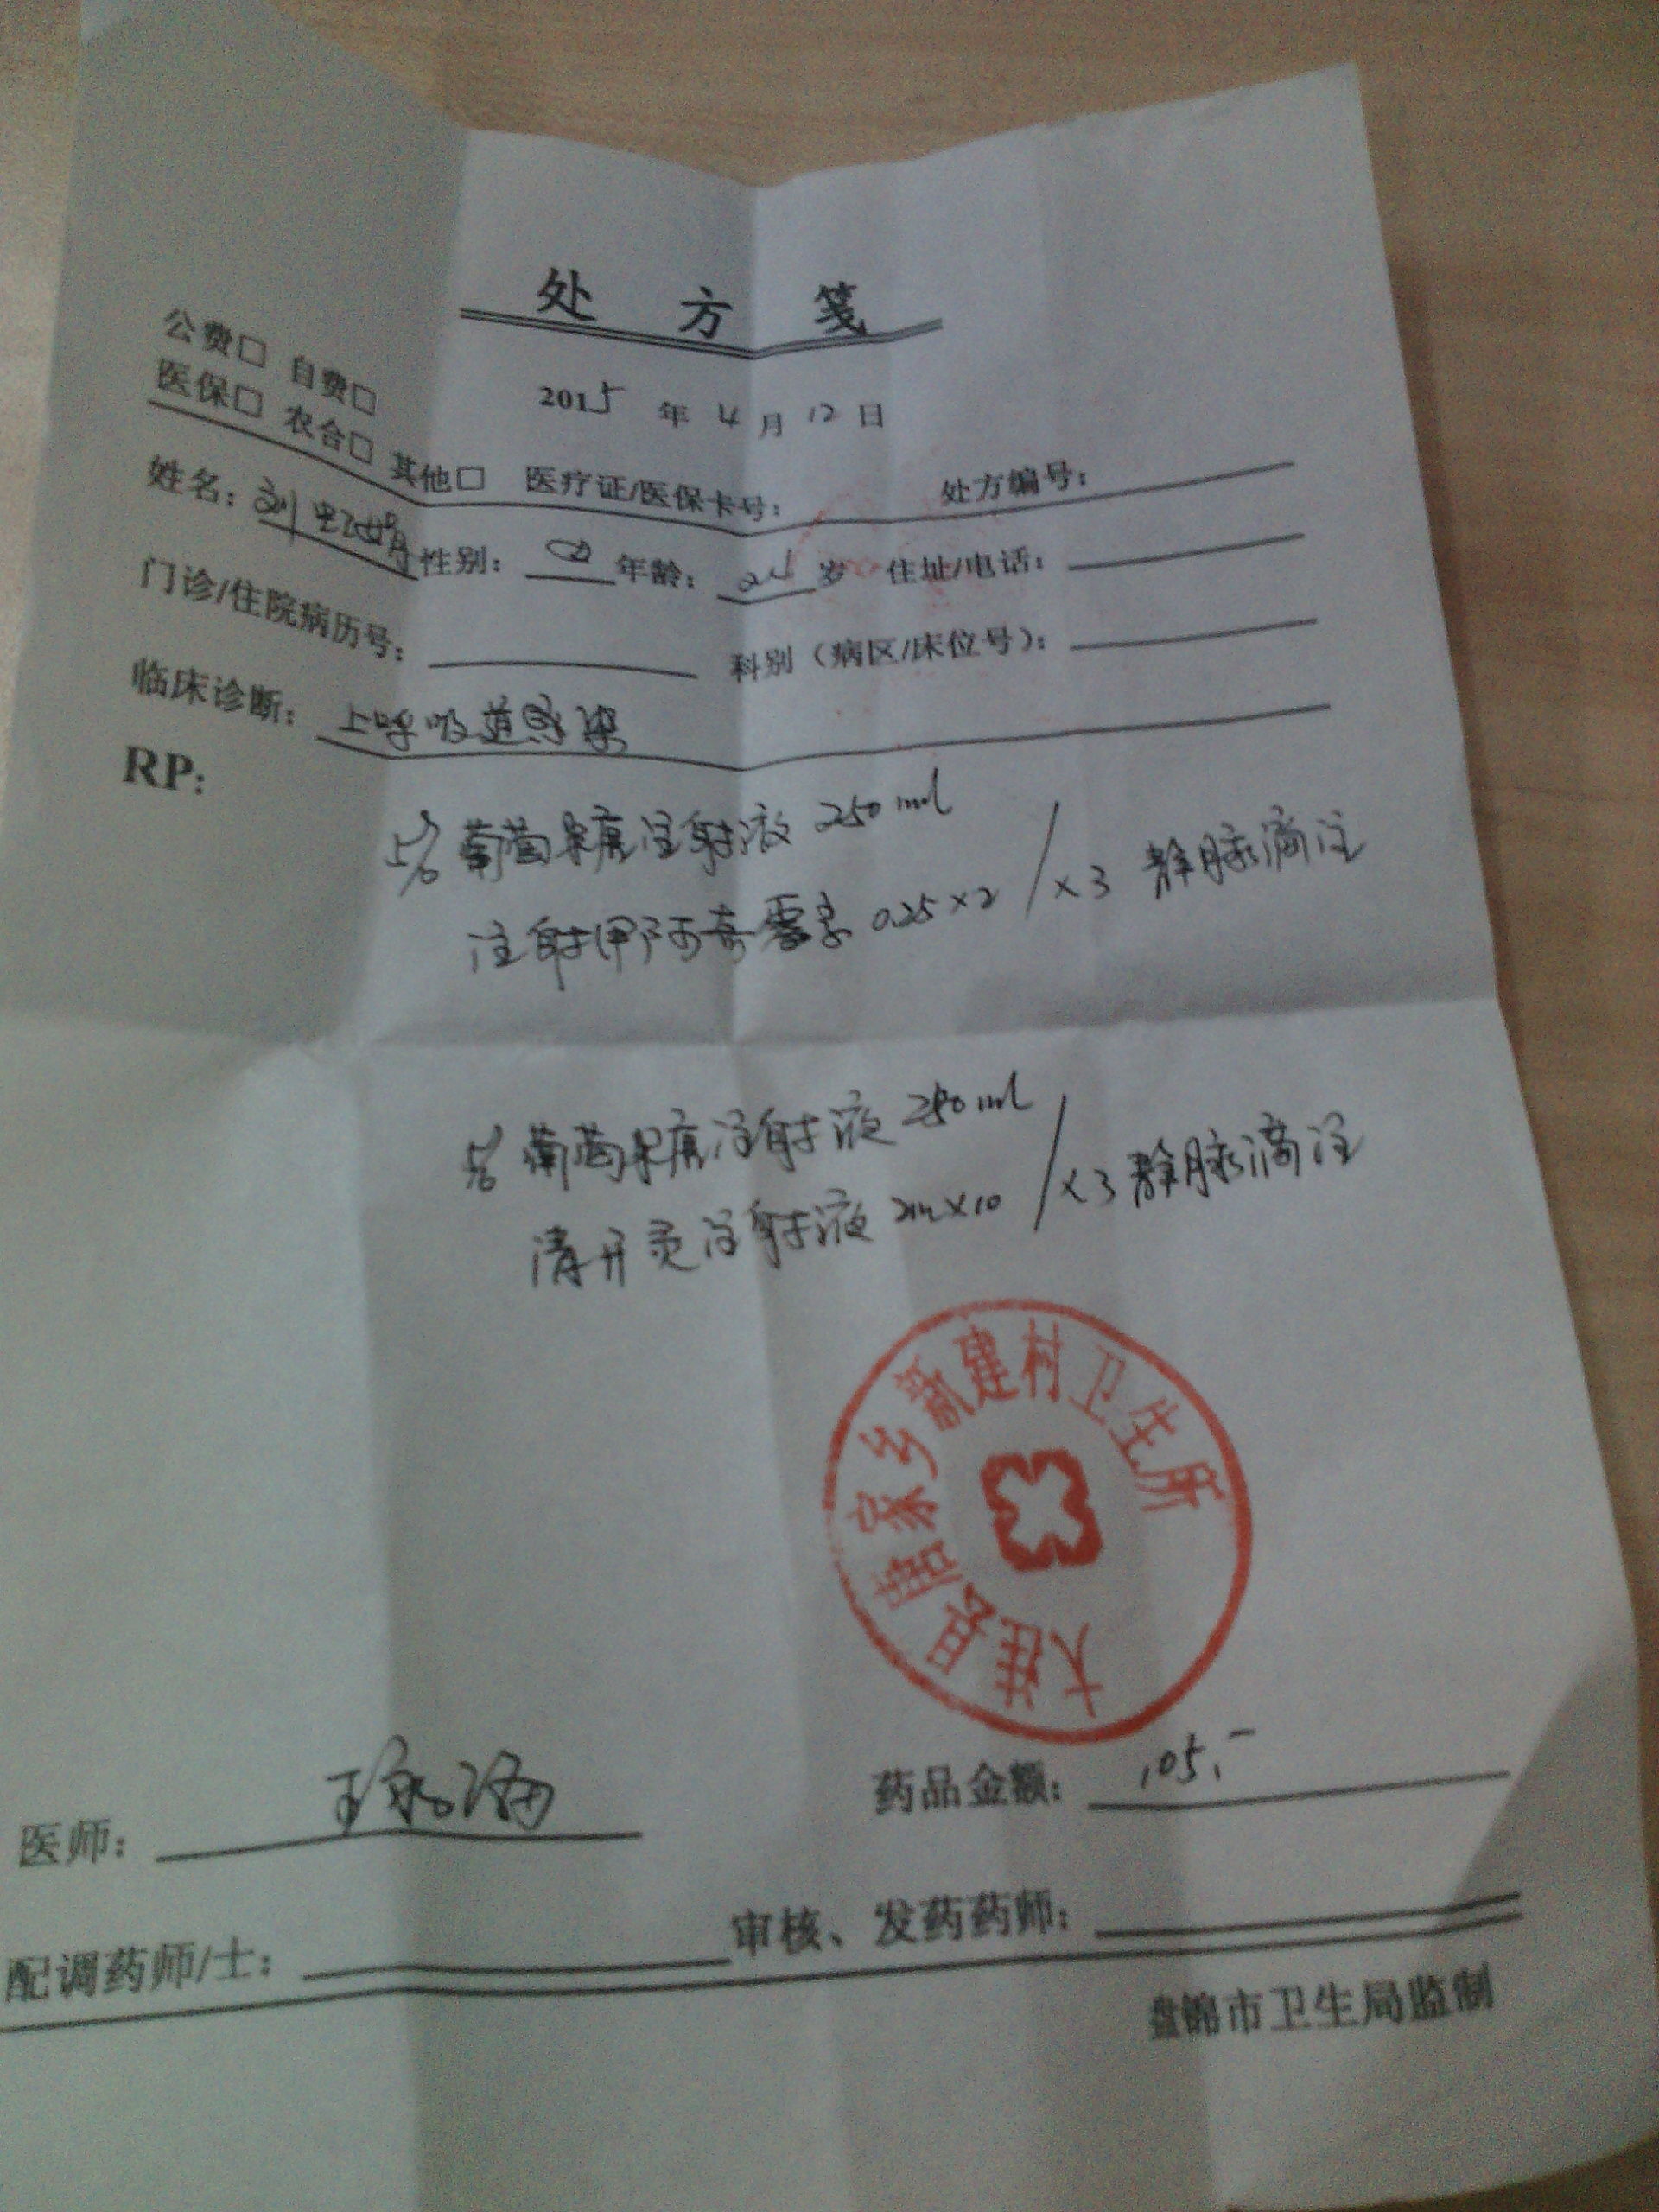 处 方 笺
公费□ 自费□
医保□ 农合□ 其他□ 医疗证/医保卡号: 处方编号:
2015 年 4 月 12 日
姓名: 刘 性别: 女 年龄: 24 岁 住址/电话:
门诊/住院病历号: 科别（病区/床位号）:
临床诊断: 上呼吸道感染
RP:
5% 葡萄糖注射液 250ml
注射用阿奇霉素 0.25×2 / ×3 静脉滴注
5% 葡萄糖注射液 250ml
清开灵注射液 2ml×10 / ×3 静脉滴注
大洼县唐家乡新建村卫生所
医师: 药品金额: 105.-
配调药师/士: 审核、发药药师:
盘锦市卫生局监制